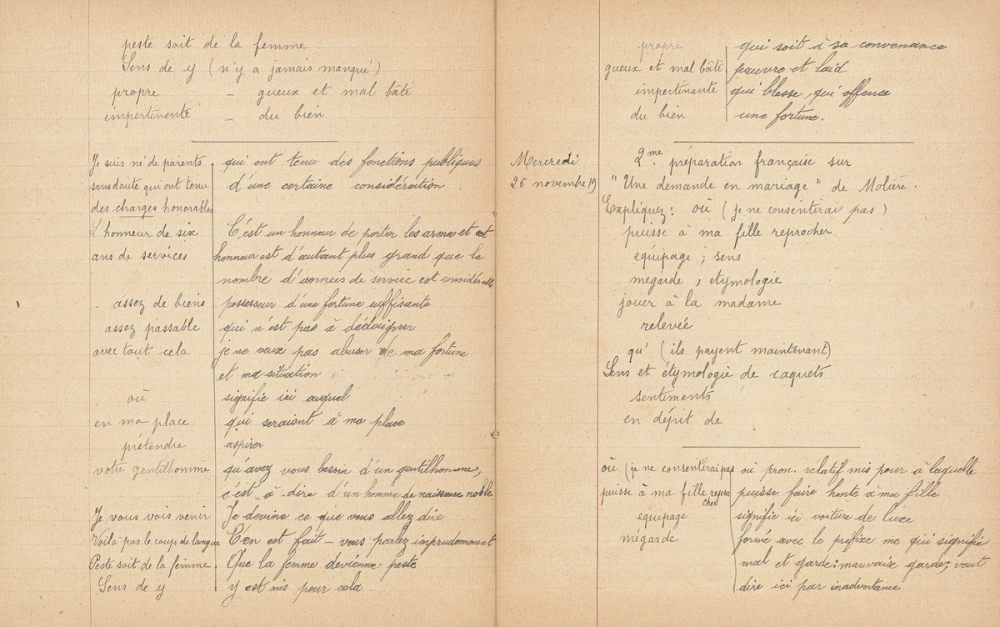 peste soit de la femme
Sens de y (n'y a jamais manqué)
propre – gueux et mal bâté
impertinente – du bien
Je suis né de parents | qui ont tenu des fonctions publiques
sans doute qui ont tenu | d'une certaine considération
des charges honorables
L'honneur de six | C'est un honneur de porter les armes et cet
ans de services | honneur est d'autant plus grand que le
nombre d'années de service est considérable
assez de biens | possesseur d'une fortune suffisante
assez passable | qui n'est pas à dédaigner
avec tout cela | je ne veux pas abuser de ma fortune
et ma situation
où | signifie ici auquel
en ma place | qui seraient à ma place
prétendre | aspirer
votre gentilhomme | qu'avez vous besoin d'un gentilhomme,
c'est à dire d'un homme de naissance noble
Je vous vois venir | Je devine ce que vous allez dire
Voilà pas le coup de langue | C'en est fait – vous parlez imprudemment
Peste soit de la femme. | Que la femme devienne peste
Sens de y | y est mis pour cela
propre | qui soit à sa convenance
gueux et mal bâté | pauvre et laid
impertinente | qui blesse, qui offense
du bien | une fortune.
Mercredi
26 novembre 19
2me préparation française sur
"Une demande en mariage" de Molière.
Expliquez : où (je ne consentirai pas)
puisse à ma fille reprocher
équipage ; sens
mégarde ; etymologie
jouer à la madame
relevée
qu' (ils payent maintenant)
Sens et etymologie de caquets
sentiments
en dépit de
où (je ne consentirai pas | où pron. relatif mis pour à laquelle
puisse à ma fille reprocher | puisse faire honte à ma fille
équipage | signifie ici voiture de luxe
mégarde | formé avec le préfixe me qui signifie
mal et garde : mauvaise garde, veut
dire ici par inadvertance